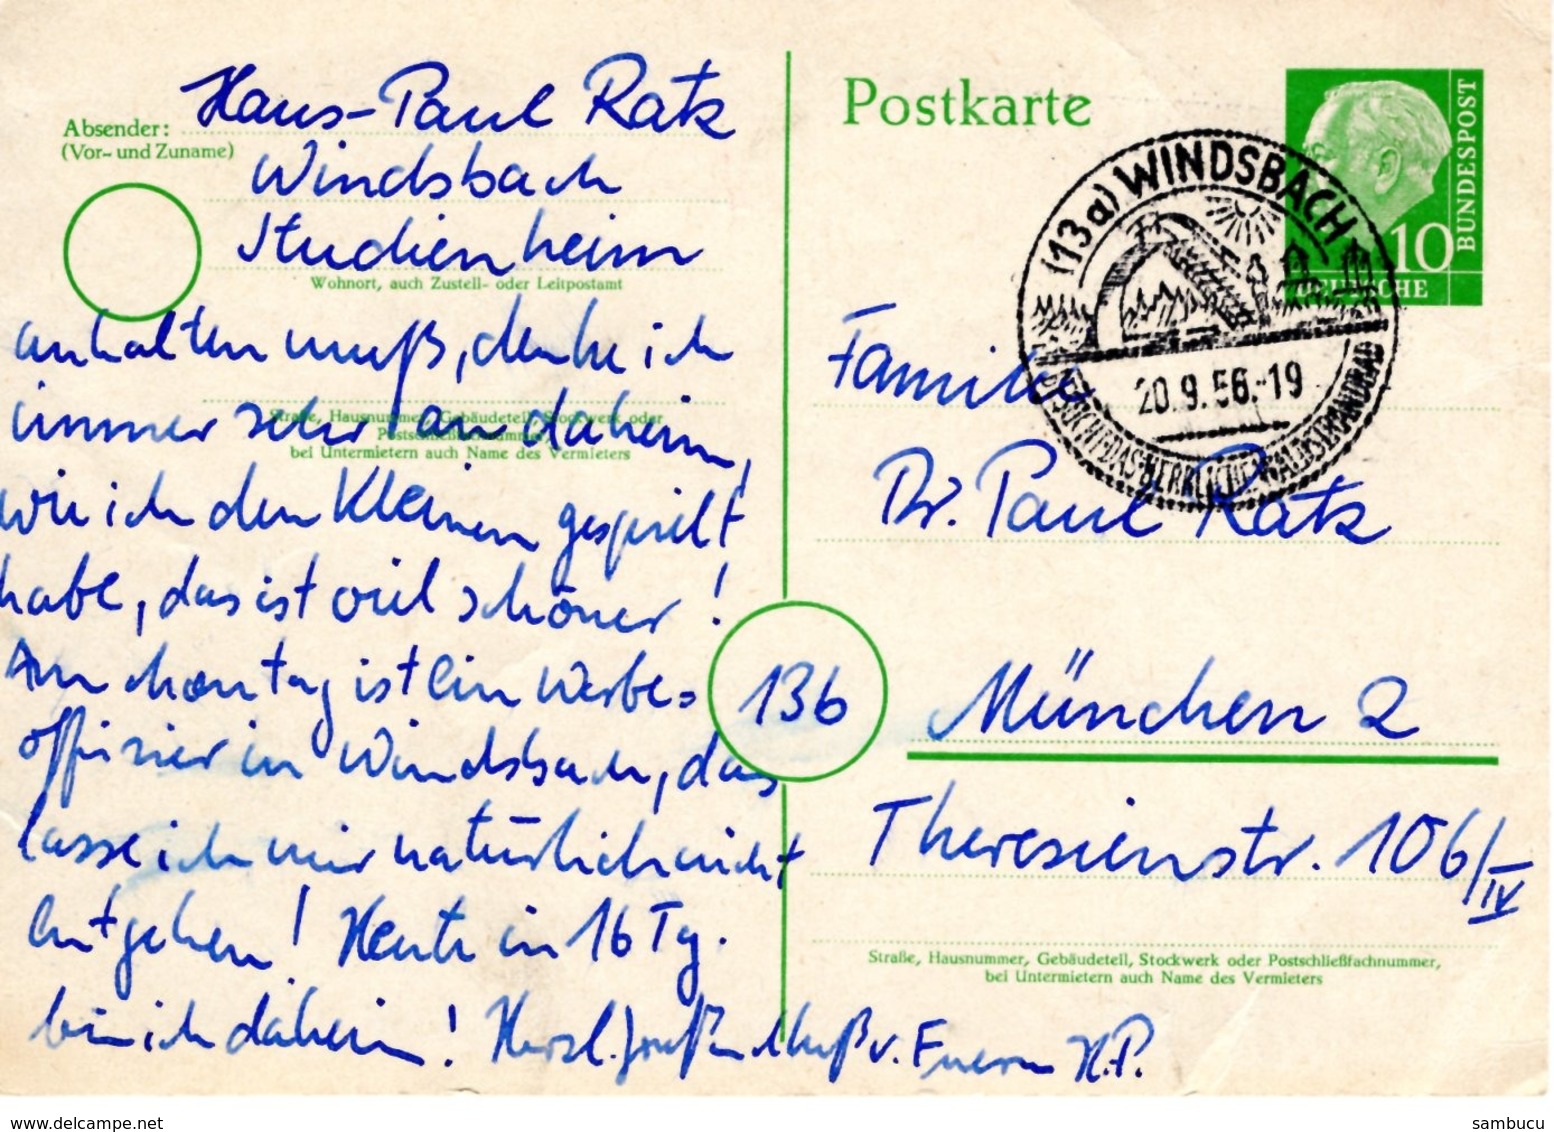 Hans-Paul Ratz
Absender:
(Vor- und Zuname)
Windsbach
Studienheim
Wohnort, auch Zustell- oder Leitpostamt
anhalten muß, denke ich
Straße, Hausnummer, Gebäudeteil, Stockwerk oder
Postschließfachnummer,
bei Untermietern auch Name des Vermieters
immer sehr an daheim,
wie ich den Kleinen gespielt
habe, das ist viel schöner!
Am Montag ist ein Werbe=
offizier in Windsbach, das
lasse ich mir natürlich nicht
entgehen! Heute in 16 Tg.
bin ich daheim! Herzl. Gruß u. Kuß v. Euerm H.P.
Postkarte
BUNDESPOST
10
DEUTSCHE
(13a) WINDSBACH
20.9.56.-19
DAS HERRLICHE WALDSTRANDBAD
Familie
Dr. Paul Ratz
13b
München 2
Theresienstr. 106/IV
Straße, Hausnummer, Gebäudeteil, Stockwerk oder Postschließfachnummer,
bei Untermietern auch Name des Vermieters
www.delcampe.net
sambucu